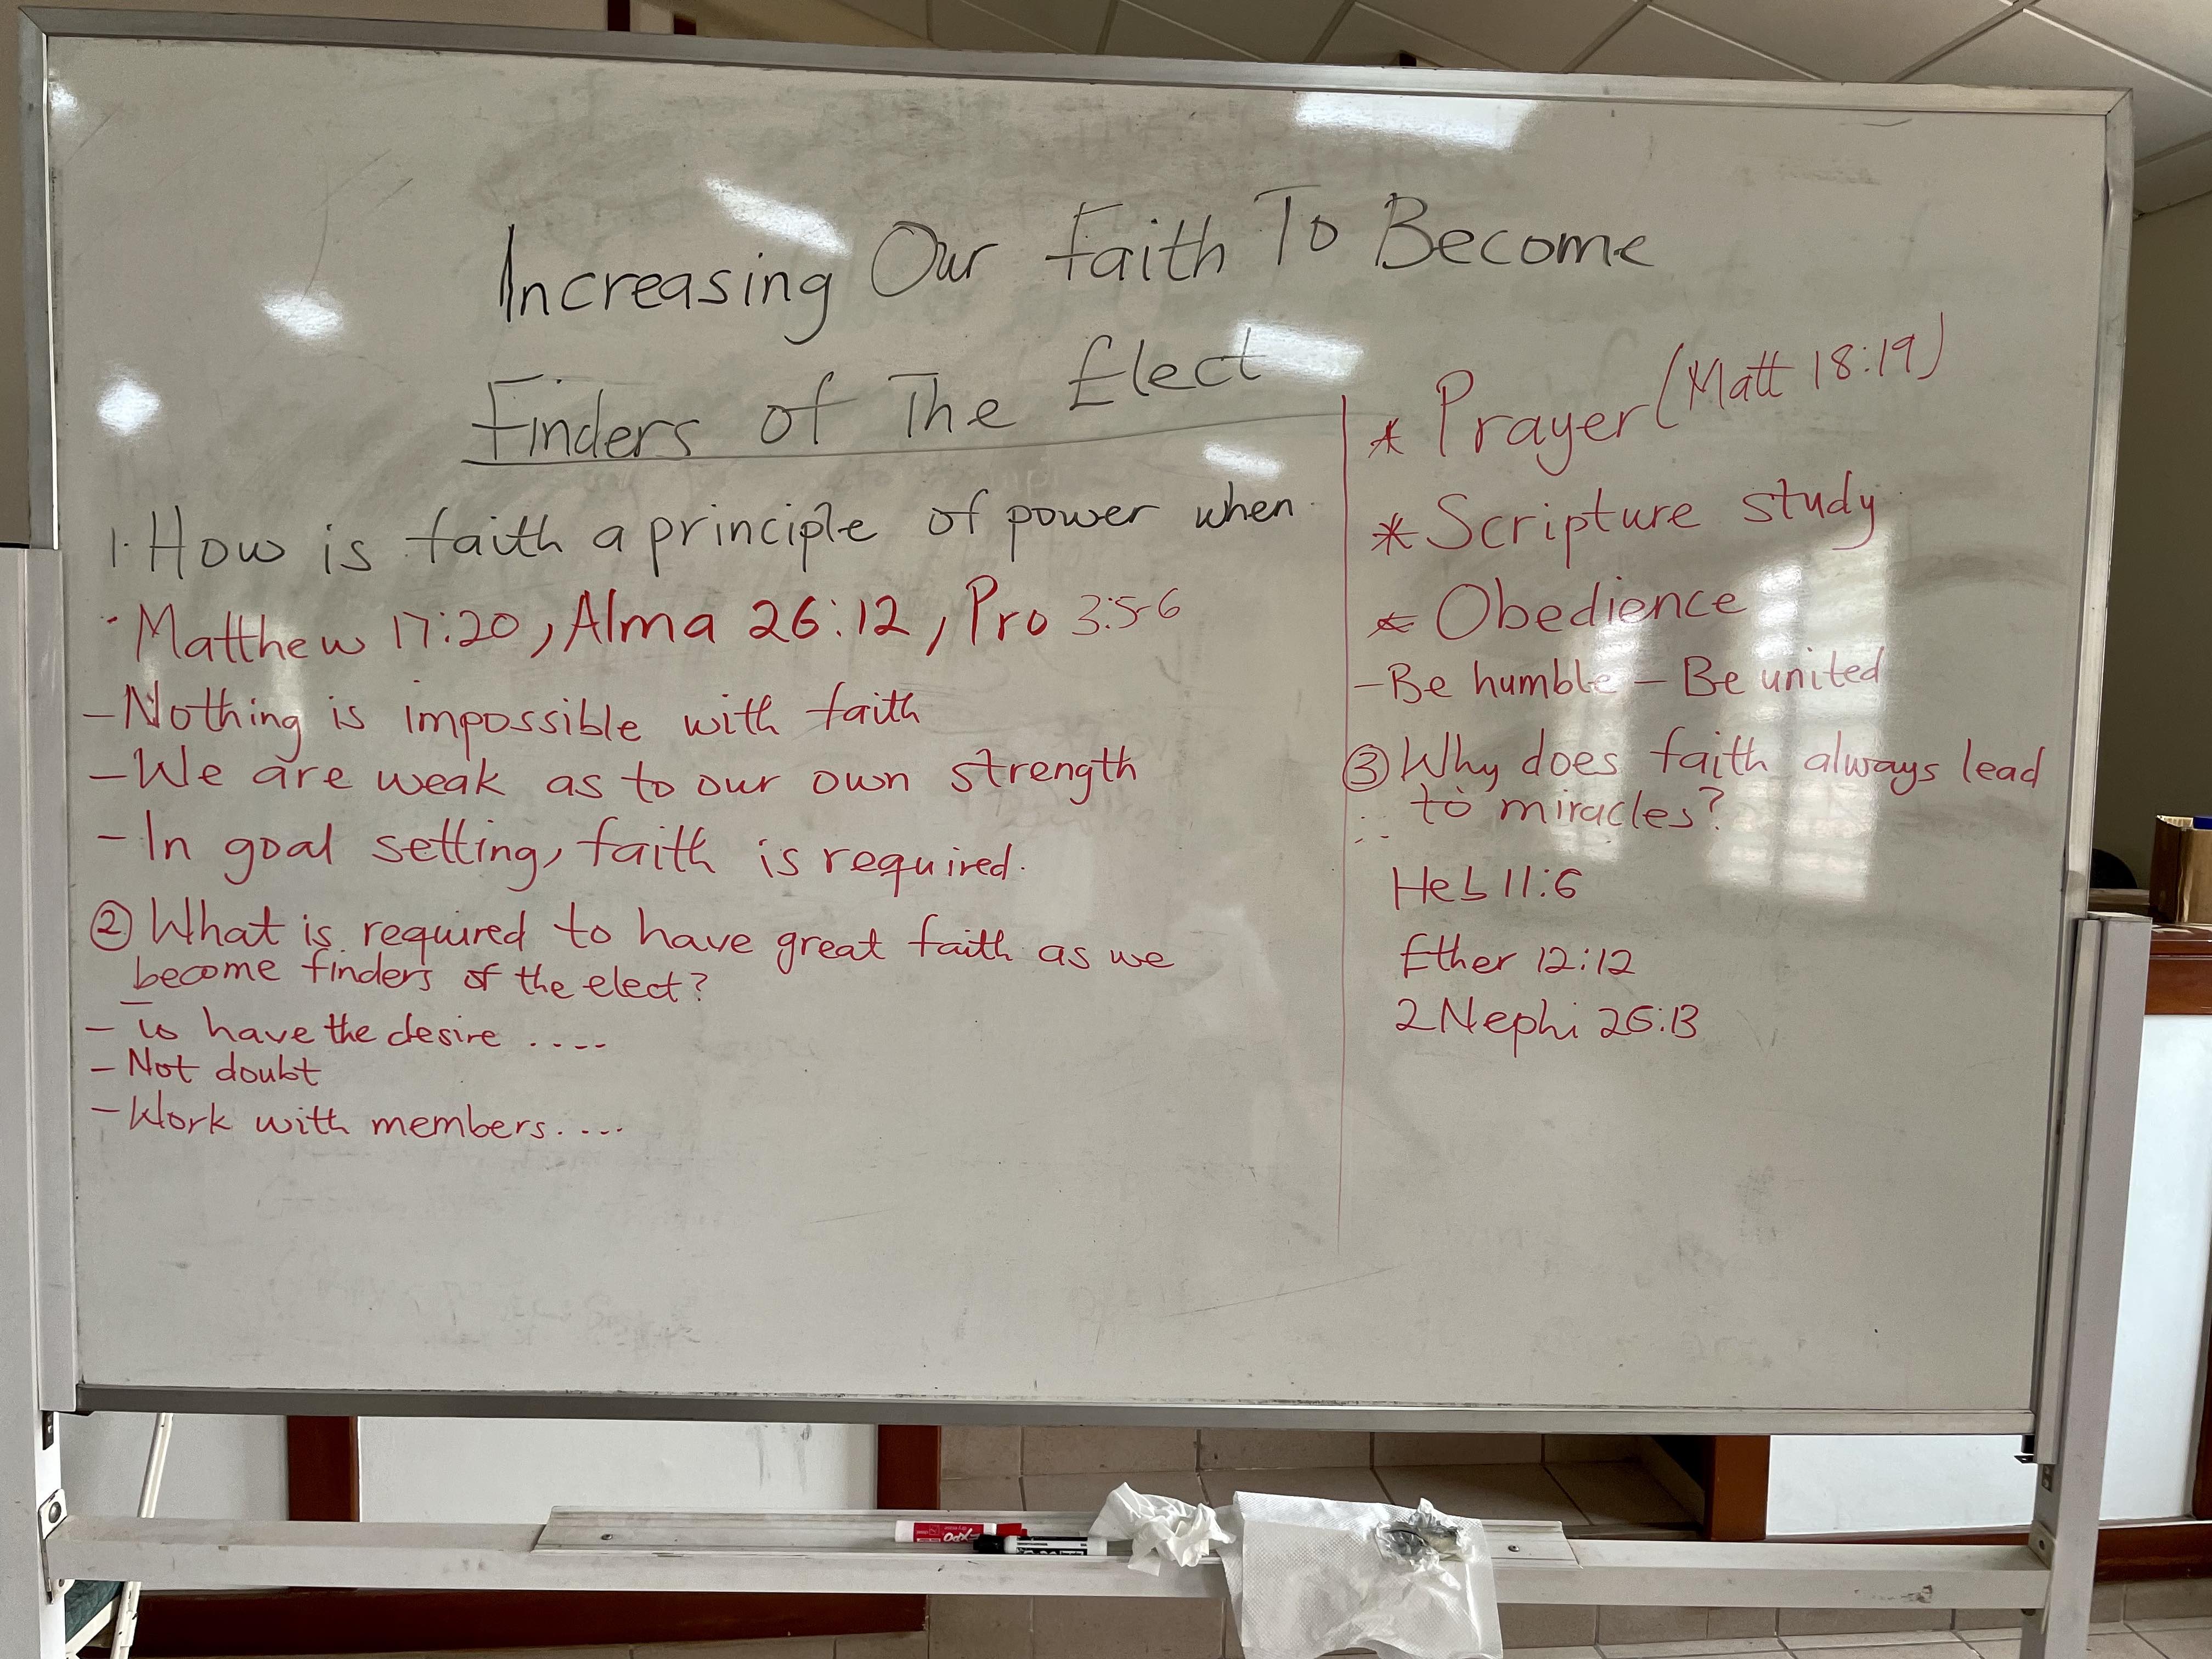 Increasing Our Faith To Become
Finders of The Elect
1. How is faith a principle of power when
Matthew 17:20, Alma 26:12, Pro 3:5-6
- Nothing is impossible with faith
- We are weak as to our own strength
- In goal setting, faith is required.
② What is required to have great faith as we
become finders of the elect?
- To have the desire ....
- Not doubt
- Work with members....
* Prayer (Matt 18:19)
* Scripture study
* Obedience
- Be humble - Be united
③ Why does faith always lead
to miracles?
Heb 11:6
Ether 12:12
2 Nephi 26:13
EXPO